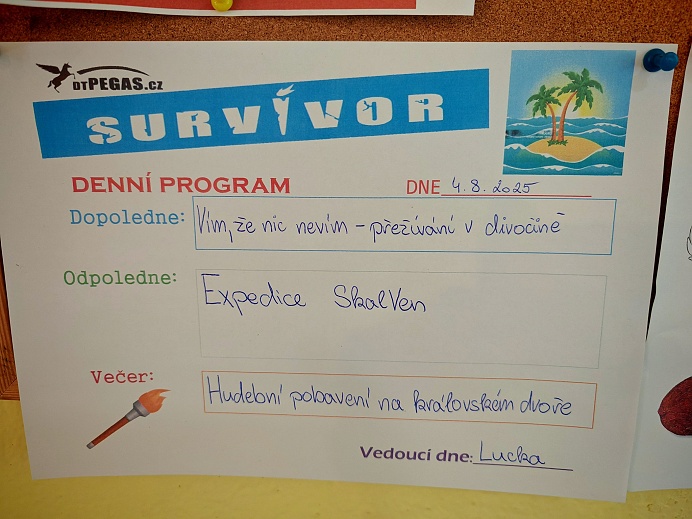 DTPEGAS.CZ
SURVIVOR
DENNÍ PROGRAM DNE 4.8.2025
Dopoledne: Vím, že nic nevím - přežívání v divočině
Odpoledne: Expedice SkalVen
Večer: Hudební pobavení na královském dvoře
Vedoucí dne: Lucka